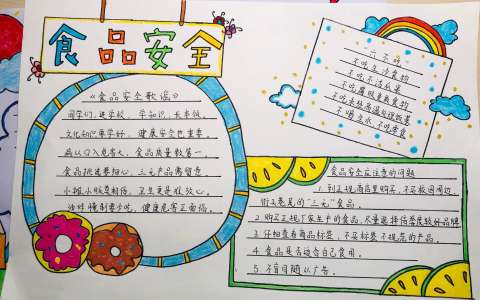 食品安全
《食品安全歌谣》
同学们,进学校,学知识,长本领,
文化知识要学好,健康安全也重要。
病从口入危害大,食品质量数第一
食品挑选要细心,三无产品需留意
小摊小贩是贪馋,卫生
油炸腌制要少吃,健康危害正面临。
"六不吃"
不吃生冷食物
不吃不洁瓜果
不吃腐败变质食物
不吃未经高温处理饭菜
不喝生水 不吃零食
食品安全应注意的问题
1. 到正规商店里购买,不买校园周边
街头巷尾的"三无"食品。
2. 购买正规厂家生产的食品,尽量选择信誉度较好品牌
3. 仔细查看商品标签,不买标签不规范的产品。
4. 食品是否适合自己食用。
5. 不盲目随从广告。